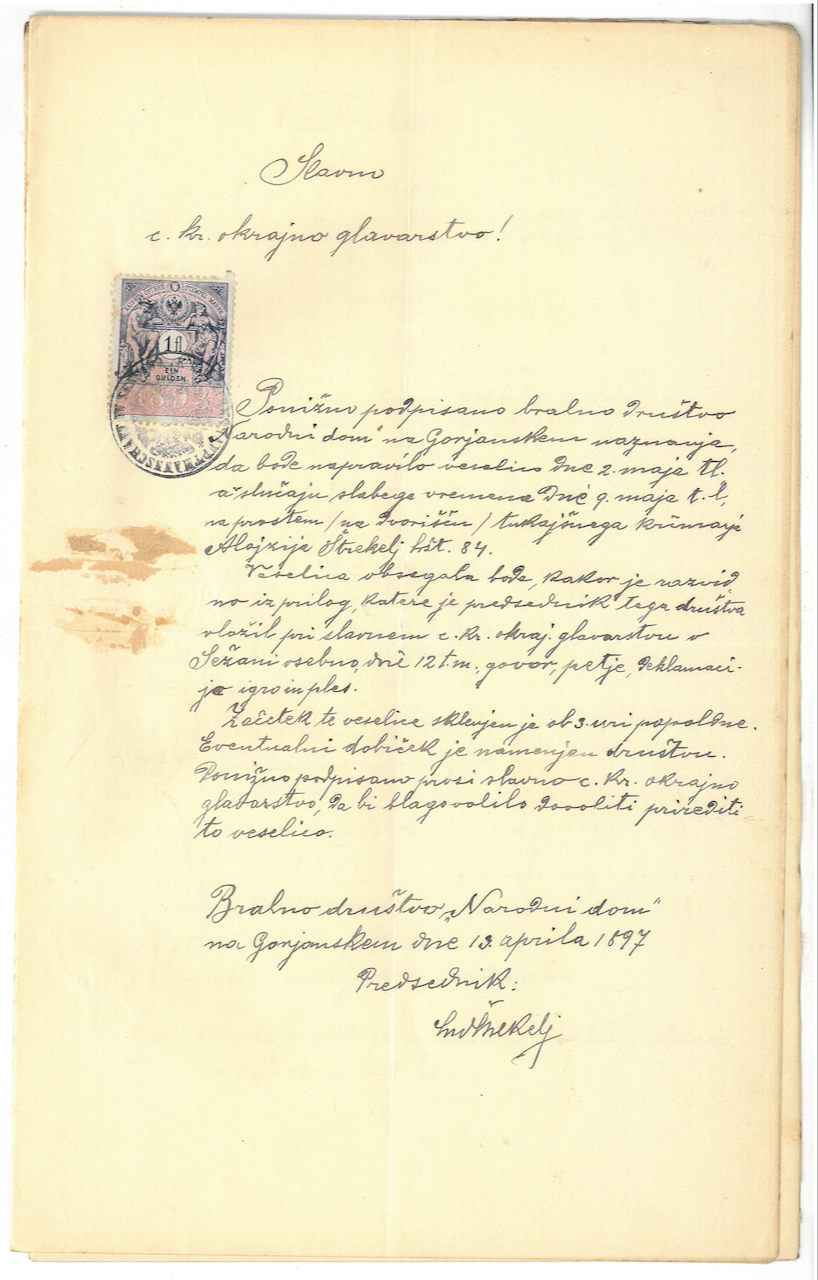 Slavno
c. kr. okrajno glavarstvo!
1 fl
EIN
GULDEN
1893
Ponižno podpisano bralno društvo
"Narodni dom" na Gorjanskem naznanja,
da bode napravilo veselico dné 2. maja t.l.
a slučaju slabega vremena dné 9. maja t.l.,
na prostem /na dvorišču/ tukajšnega krčmarja
Alojzija Štrekelj hšt. 84.
Veselica obsegala bode, kakor je razvid
no iz prilog, katere je predsednik tega društva
vložil pri slavnem c. kr. okraj. glavarstvu v
Sežani osebno, dné 12 t.m., govor, petje, deklamaci-
jo igro in ples.
Začetek te veselice sklenjen je ob 3. uri popoldne.
Eventualni dobiček je namenjen društvu.
Ponižno podpisano prosi slavno c. kr. okrajno
glavarstvo, da bi blagovolilo dovoliti prirediti
to veselico.
Bralno društvo "Narodni dom"
na Gorjanskem dné 13. aprila 1897
Predsednik:
Štrekelj